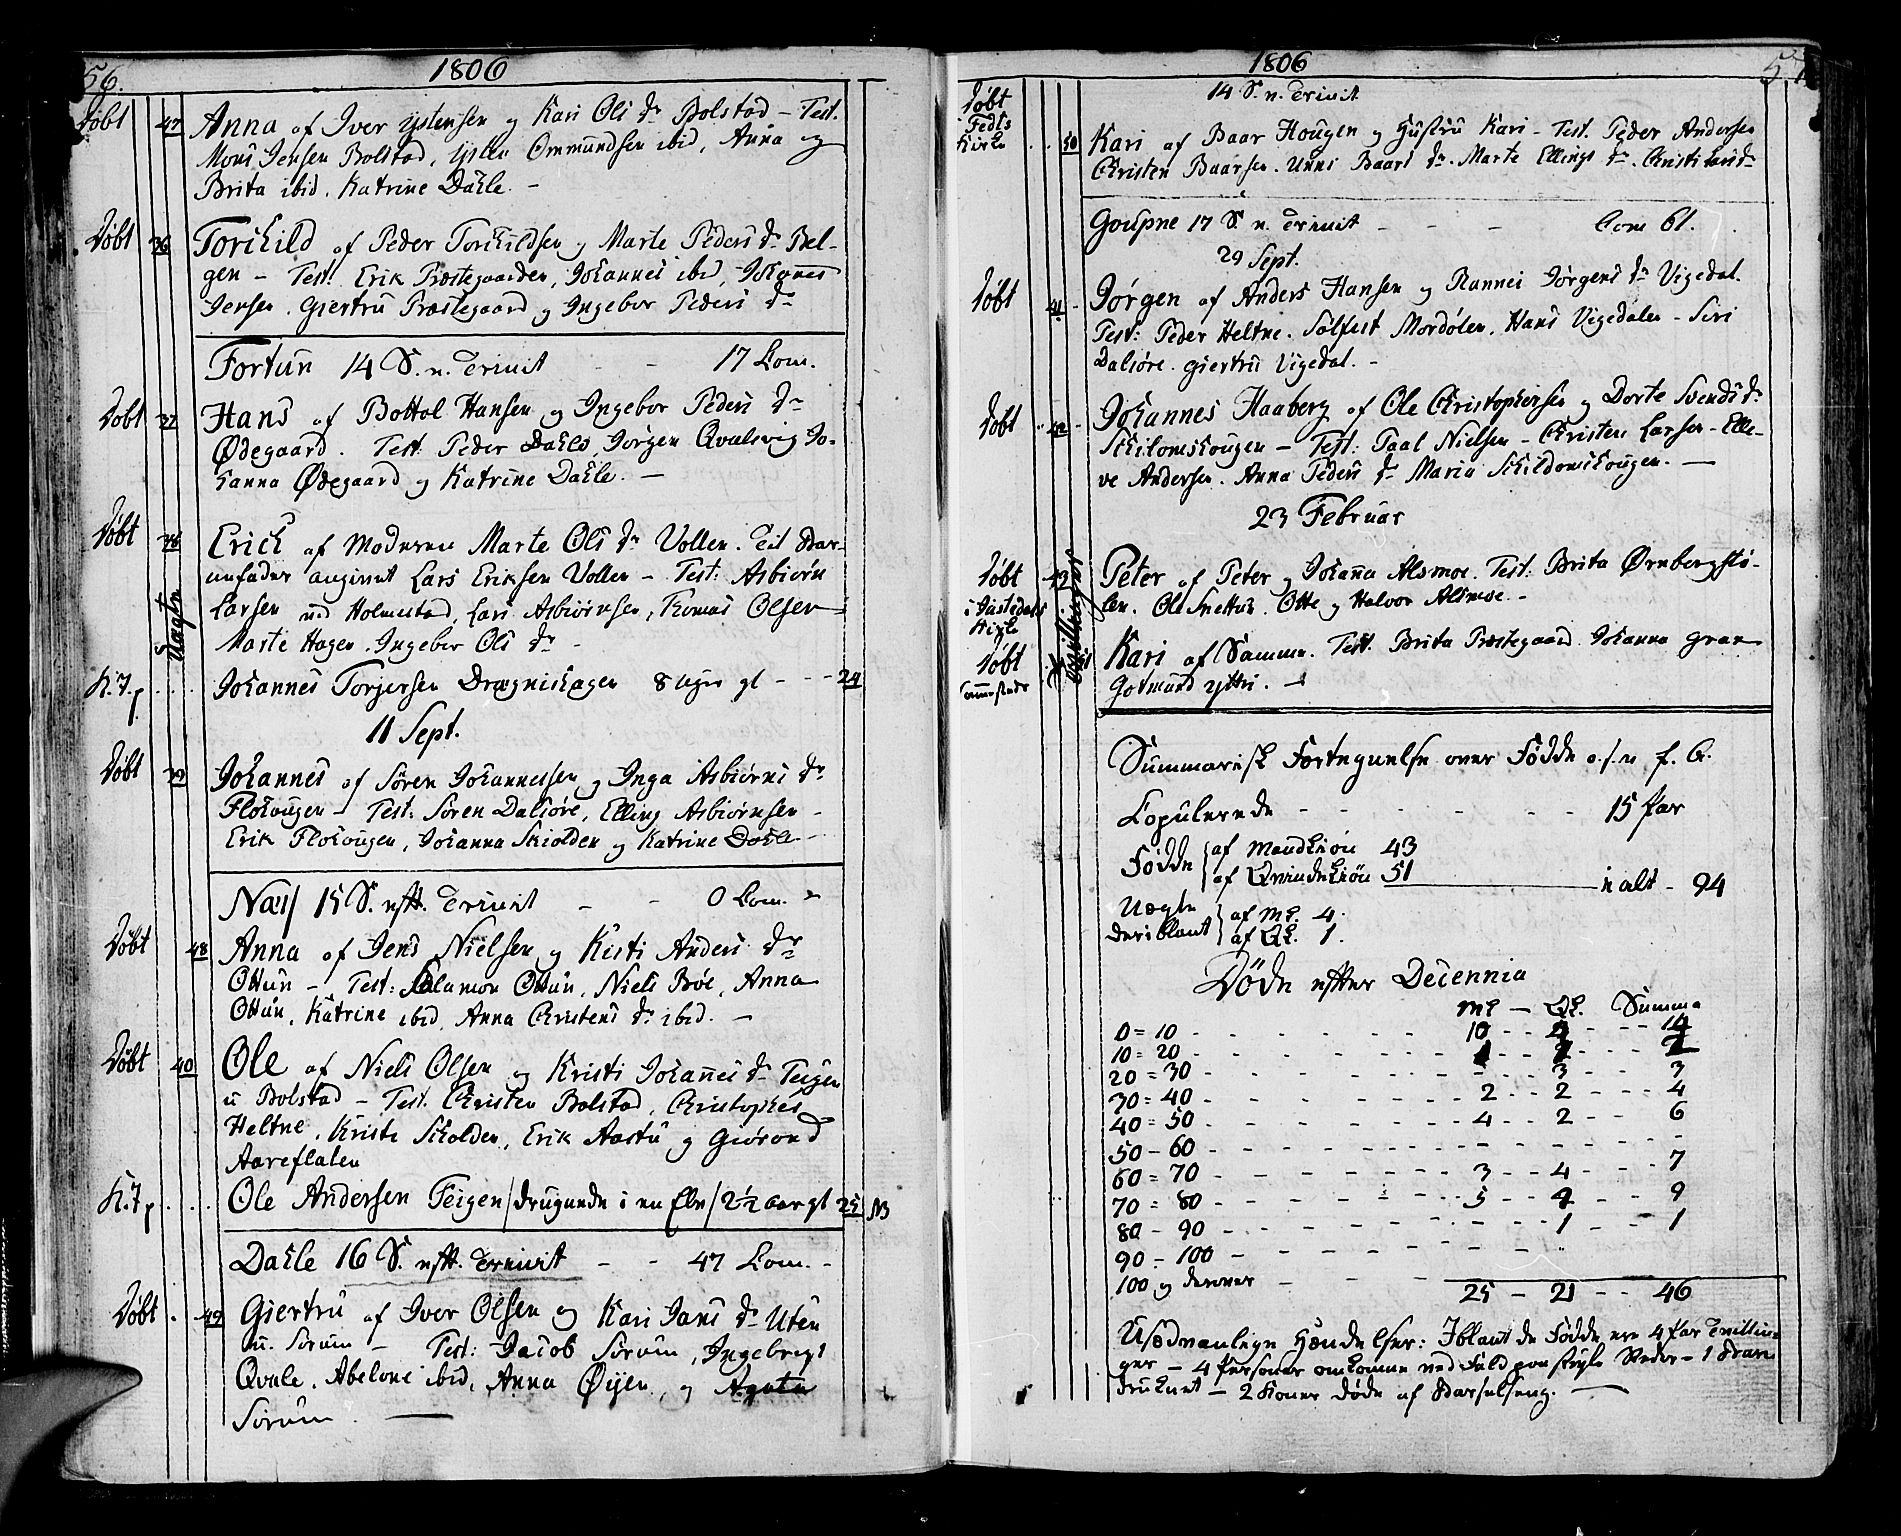 56.
1806
Döbt 47 Anna af Iver ystensen og Kari Ols Dr Bolstad – Test.
Mons Jensen Bolstad, ysten Ommundsen ibid, Anna og
Brita ibid. Katrine Dahle. –
Döbt 36 Torchild af Peder Torchildsen og Marte Peders Dr Bel-
gen – Test: Erik Præstegaarden, Johannes ibid, Johannes
Jensen. Giertru Præstegaard og Ingebor Peders Dr
Fortun 14 S. n. Trinit – 17 Com.
Döbt 37 Hans af Bottol Hansen og Ingebor Peders Dr
Ødegaard. Test: Peder Dahle, Jörgen Qvalsvig Jo-
hanna Ødegaard og Katrine Dahle. –
Döbt 38 Erich af Moderen Marte Ols Dr Vollen. Til Bar-
nefader angivet Lars Eriksen Vollen – Test: Asbiørn
Larsen ved Holmestad, Lars Asbiörnsen, Thomas Olsen
Uægte
Marte Hagen, Ingebor Ols Dr –
K. J. p. Johannes Torgersen Drægnishagen 8 uger gl – – – 24
11 Sept.
Döbt 39 Johannes af Sören Johannessen og Inga Asbiörns Dr
Flohougen – Test: Sören Dalsöre, Elling Asbiörnsen –
Erik Flohougen, Johanna Skiolden og Katrine Dahle –
Næs 15 S. eft. Trinit – – 0 Com.
Döbt 48 Anna af Jens Nielsen og Kisti Anders Dr
Ottun – Test: Salamon Ottun, Niels Böe, Anna
Ottun, Katrine ibid, Anna Christens Dr ibid. –
Döbt 40 Ole af Niels Olsen og Kristi Johannes Dr Teigen
u Bolstad – Test. Christen Bolstad, Christopher
Heltne, Kristi Skolden, Erik Aastu og Giörond
Aareflaten
K. J. p. Ole Andersen Teigen / druknede i en Elv / 2½ aar gl 25 NB
Dahle 16 S. eft. Trinit – – 47 Com. –
Döbt 49 Giertru af Iver Olsen og Kari Jans Dr Uten
u. Sorum – Test: Jacob Sorum, Ingebrigt
Qvale, Abelone ibid, Anna Øyen, og Agata
Sorum. –
1806
57
14 S. n. Trinit
Döbt i Fedts Kirke 50 Kari af Baar Hougen og Hustru Kari – Test. Peder Andersen
Christen Baarsen. Unni Baars Dr. Marte Ellings Dr.
Goupne 17 S. n. Trinit – – – Com 61.
29 Sept.
Döbt 41 Jörgen af Anders Hansen og Rannei Jörgens Dr Vigedal.
Test: Peder Heltne. Sölfest Mordölen, Hans Vigedalen – Siri
Dalsöre. Giertru Vigedal. –
Döbt 42 Johannes Haaberg af Ole Christophersen og Dorte Svends Dr
– Test: Paal Nielsen – Christen Larsen – Elle-
ve Andersen. Anna Peders Dr Maria Skildomshougen. –
23 Februar
Döbt 43 Peter af Peter og Johanna Alsmoe. Test: Brita Ørnbergstö-
i Justedals Kirke
len. Ole Snettun. Otte og Halvor Alsmoe. –
Tvillinger
Döbt sammesteds Kari af Samme. Test. Brita Præstegaard Johanna Gran
Gotmund yttri. –
Summarisk Fortegnelse over Födde o.s.v. f. A.
Copulerede – – – – – 15 Par
Födde af Mandkiön 43
af Qvindekiön 51 i alt – 94
Uægte deriblant af Mk. 4.
af Qk. 1.
Döde efter Decennia
Mk – Qk. Summa
0 = 10 – – – – 10 – – 4 – – – 14
10 = 20 – – – – 1 – – 1 – – – 2
20 = 30 – – – – 3 – – – 3
30 = 40 – – – – 2 – – 2 – – – 4
40 = 50 – – – – 4 – – 2 – – 6
50 – 60 – – – –
60 = 70 – – – – 3 – – 4 – – – 7
70 = 80 – – – – 5 – – 4 – – 9
80 – 90 – – – – 1 – – – 1
90 – 100 – – – –
100 og derover – – –
25 – 21 – – 46
Usædvanlige Hændelser: Iblant de Födde ere 4 Par Tvillin-
ger – 4 Personer omkomne ved Fald paa steile Steder – 1 Barn
druknet – 2 Koner döde af Barselseng. –